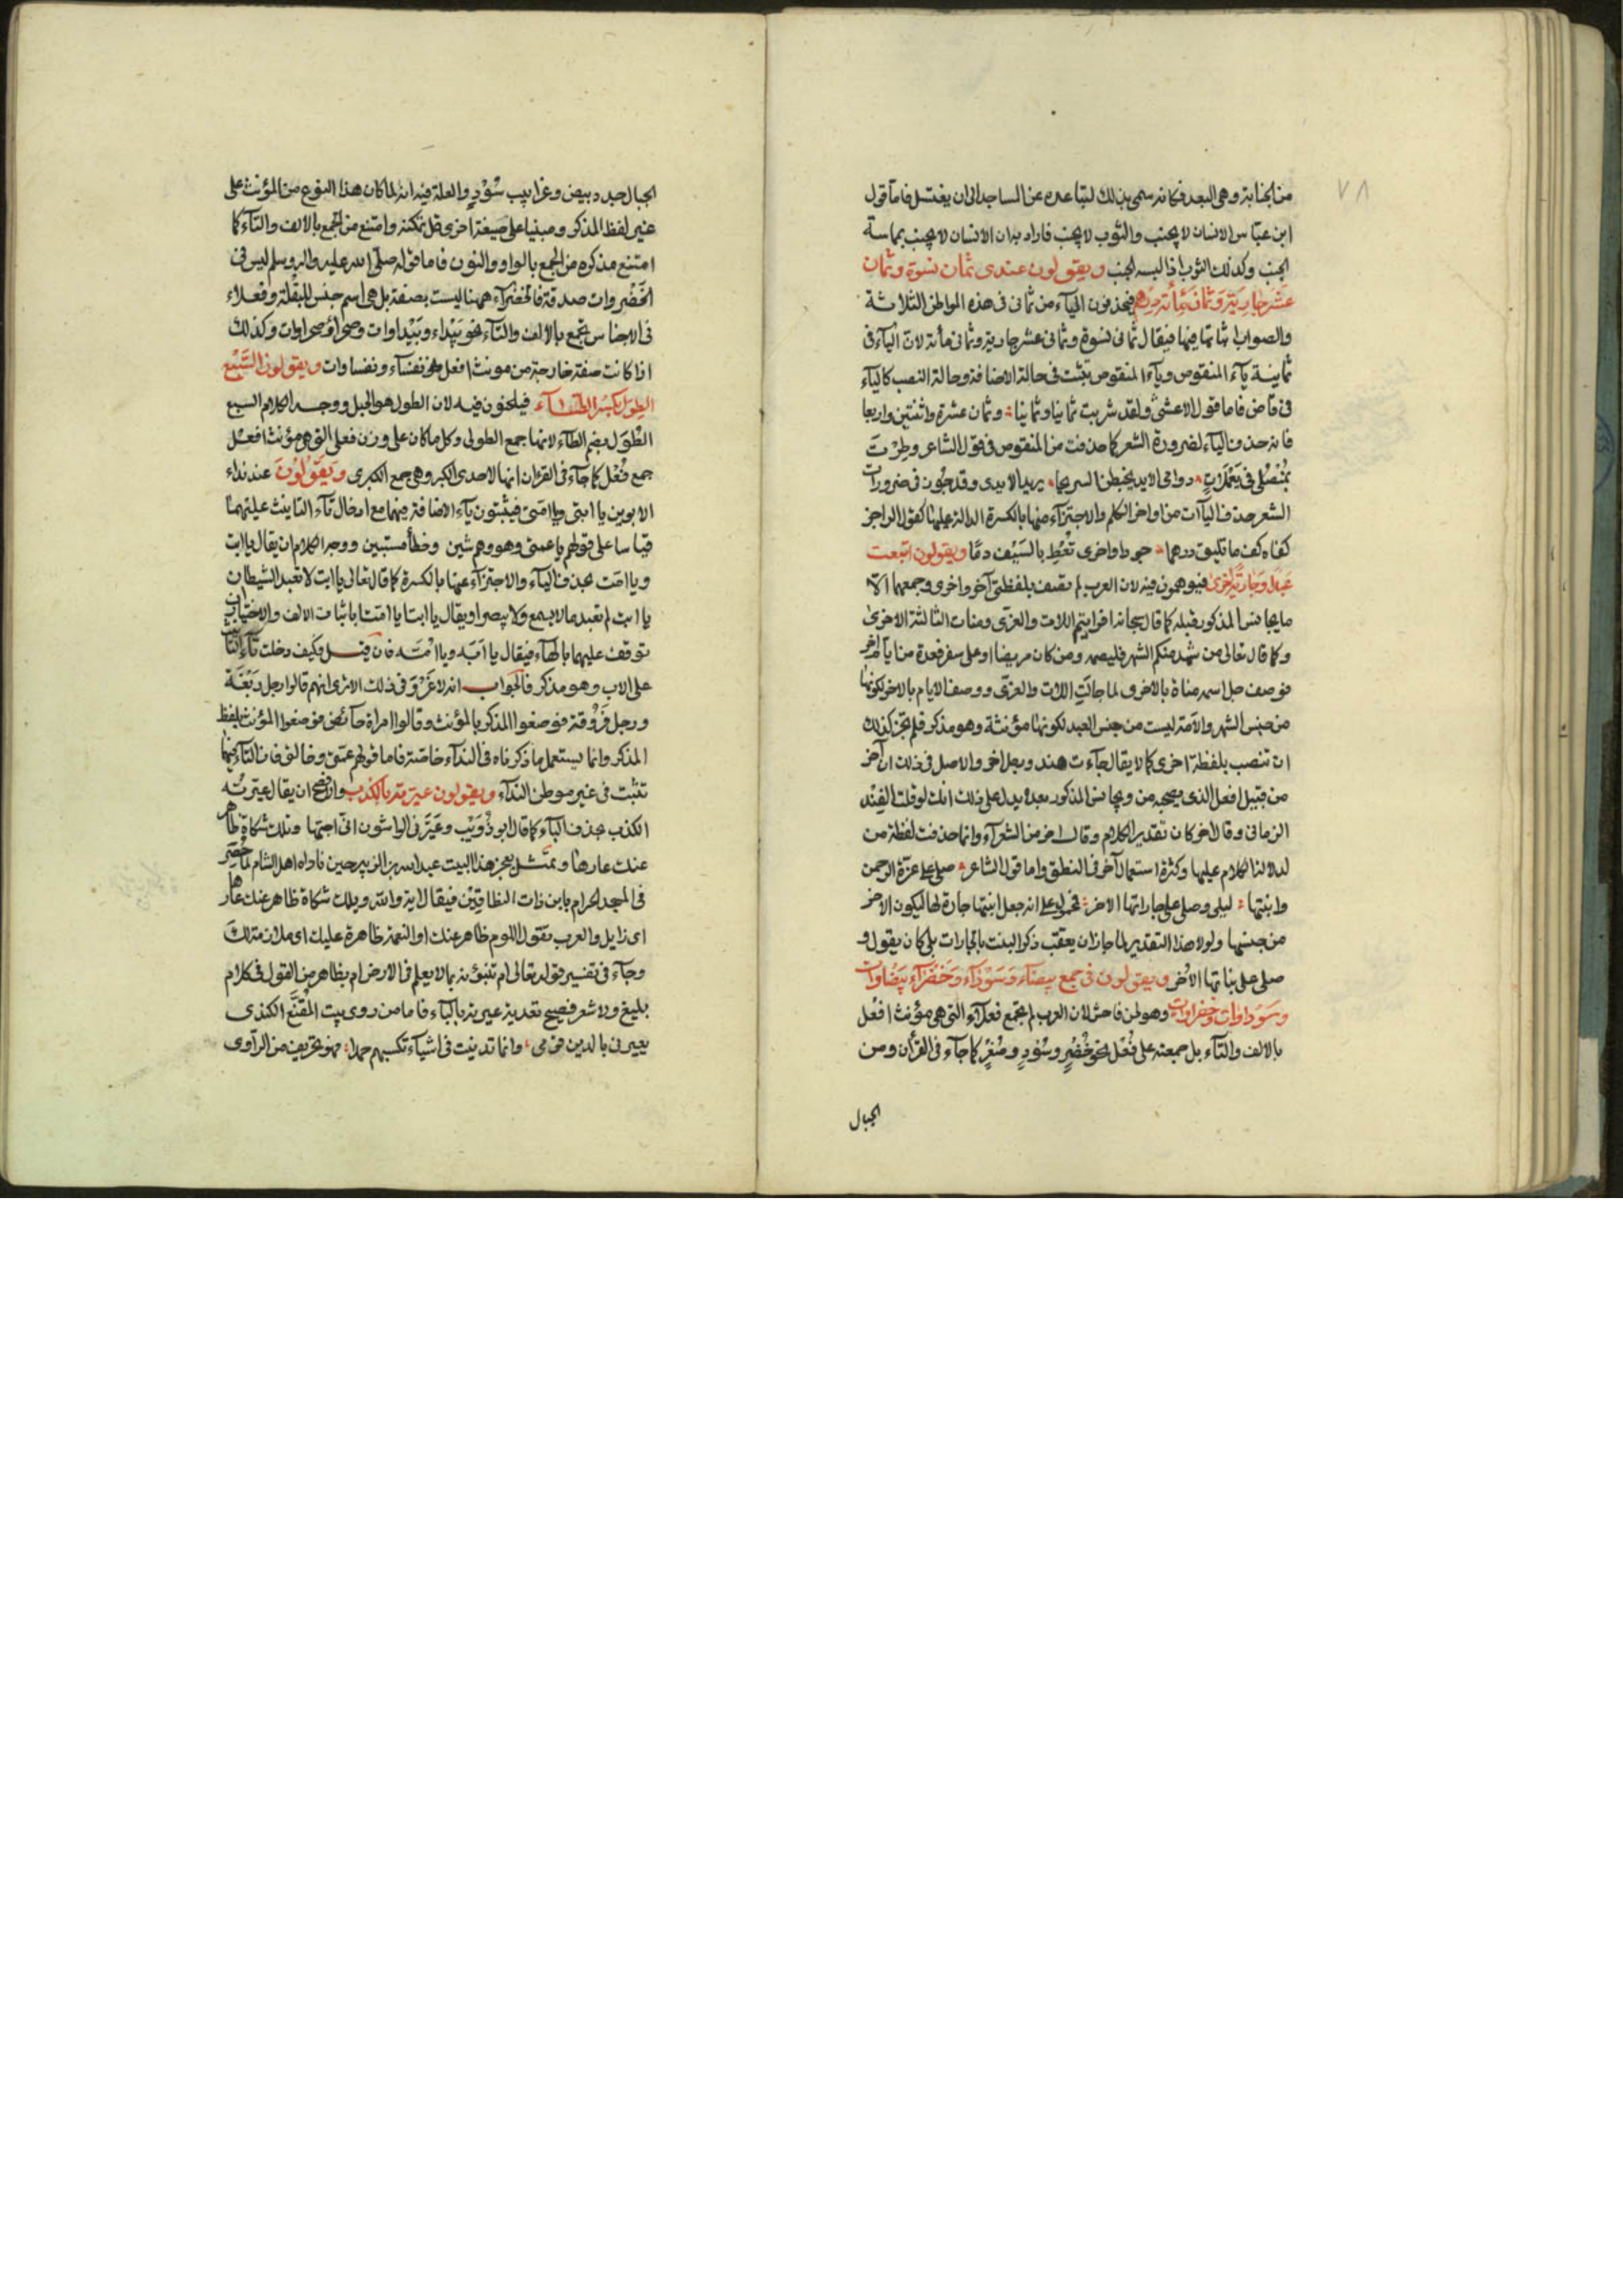 ٧٨
من الجنابة وهى البعد فكانه سمى بذلك لتباعده عن المساجد الى ان يغتسل فاما قول
ابن عباس الانسان لا يجنب والثوب لا يجنب فاراد به ان الانسان لا يجنب بمماسة
الجنب وكذلك الثوب اذا لبسه الجنب ويقولون عندى ثمان نسوة وثمان
عشر جارية وثمان مأته درهم فيحذفون الياء من ثمانى فى هذه المواطن الثلاثة
والصواب اثباتها فيها فيقال ثمانى نسوة وثمانى عشر جارية وثمانى مأته لان الياء فى
ثمانية ياء المنقوص وياء المنقوص تثبت فى حالة الاضافة وحالة النصب كالياء
فى قاض فاما قول الاعشى ولقد شربت ثمانيا وثمانيا وثمان عشرة واثنتين واربعا
فانه حذف الياء لضرورة الشعر كما حذفت من المنقوص فى قول الشاعر وطرت
بمنصلى فى يعملات دوامى الايد يخبطن السريحا يريد الايدى وقد جوزوا فى ضرورات
الشعر حذف الياآت من اواخر الكلم والاجتزاء منها بالكسرة الدالة عليها كقول الراجز
كفاه كف ما تليق درهما جودا واخرى تعط بالسيف دما ويقولون ابتعت
عبدا وجارية اخرى فيوهمون فيه لان العرب لم تصف بلفظتى آخر واخرى وجمعهما الا
ما يجانس المذكور قبله كما قال سبحانه افرايتم اللات والعزى ومنات الثالثة الاخرى
وكما قال تعالى من شهد منكم الشهر فليصمه ومن كان مريضا او على سفر فعدة من ايام اخر
فوصف جل اسمه مناة بالاخرى لما جانت اللات والعزى ووصف الايام بالاخر لكونها
من جنس الشهر والامة ليست من جنس العبد لكونها مؤنثة وهو مذكر فلم يجز كذلك
ان تتصب بلفظة اخرى كما لا يقال جاءت هند ورجل اخر والاصل فى ذلك ان آخر
من قبيل افعل الذى يصحبه من ويجانس المذكور بعده يدل على ذلك انك لو قلت الفند
الزمانى وقال اخر كان تقدير الكلام وقال اخر من الشعراء وانما حذفت لفظة من
لدلالة الكلام عليها وكثرة استعمال آخر فى النطق واما قول الشاعر صلى على عزة الرحمن
وابنتها ليلى وصلى على جاراتها الاخر فمحمول على انه جعل ابنتها جارة لها ليكون الاخر
من جنسها ولولا هذا التقدير لما جاز ان يعقب ذكر البنت بالجارات بل كان يقول و
صلى على بناتها الاخر ويقولون فى جمع بيضاء وسوداء وخضراء بيضاوات
وسوداوات وخضراوات وهو لحن فاحش لان العرب لم تجمع فعلاء التى هى مؤنث افعل
بالالف والتاء بل جمعته على فعل نحو خضر وسود وصفر كما جاء فى القرأن ومن
الجبال
الجبال جدد بيض وغرابيب سود والعلة فيه انه لما كان هذا النوع من المؤنث على
غير لفظ المذكر ومبنيا على صيغة اخرى قل تمكنه وامتنع من الجمع بالالف والتاء كما
امتنع مذكره من الجمع بالواو والنون فاما قوله صلى الله عليه واله وسلم ليس فى
الخضروات صدقة فالخضراء ههنا ليست بصفة بل هى اسم جنس للبقلة وفعلاء
فى الاجناس تجمع بالالف والتاء نحو بيداء وبيداوات وصحراء وصحراوات وكذلك
اذا كانت صفة خارجة من مونث افعل نحو نفساء ونفساوات ويقولون السبع
الطول بكسر الطاء فيلحنون فيه لان الطول هو الحبل ووجه الكلام السبع
الطول بضم الطاء لانها جمع الطولى وكل ما كان على وزن فعلى التى هى مؤنث افعل
جمع فعل كما جاء فى القران انها لاحدى الكبر وهى جمع الكبرى ويقولون عند نداء
الابوين يا ابتى ويا امتى فيثبتون ياء الاضافة فيهما مع ادخال تاء التانيث عليهما
قياسا على قولهم يا عمتى وهو وهم شين وخطأ مستبين ووجه الكلام ان يقال يا ابت
ويا امت بحذف الياء والاجتزاء عنها بالكسرة كما قال تعالى يا ابت لا تعبد الشيطان
يا ابت لم تعبد ما لا يسمع ولا يبصر او يقال يا ابتا يا امتا باثبات الالف والاختيار ان
توقف عليهما بالهاء فيقال يا ابه ويا امه فان قيل فكيف دخلت تاء التانيث
على الاب وهو مذكر فالجواب انه لا غرو فى ذلك الا ترى انهم قالوا رجل ربعة
ورجل فروقة فوصفوا المذكر بالمؤنث وقالوا امراة حائض فوصفوا المؤنث بلفظ
المذكر وانما يستعمل ما ذكرناه فى النداء خاصة فاما قولهم عمتى وخالتى فان التاء فيهما
تثبت فى غير موطن النداء ويقولون عيرته بالكذب والافصح ان يقال عيرته
الكذب بحذف الباء كما قال ابو ذويب وعيرنى الواشون انى احبها وتلك شكاة ظاهر
عنك عارها وتمثل بعجز هذا البيت عبد الله بن الزبير حين ناداه اهل الشام لما حصر
فى المسجد الحرام يا ابن ذات النطاقين فيقال ايه والله وتلك شكاة ظاهر عنك عارها
اى زايل والعرب تقول اللوم ظاهر عنك او النعمة ظاهرة عليك اى ملازمة لك
وجاء فى تفسير قوله تعالى ام تنبؤنه بما لا يعلم فى الارض ام بظاهر من القول فى كلام
بليغ ولا شعر فصيح تعدية عيرته بالباء فاما من روى بيت المقنع الكندى
يعيرنى بالدين قومى وانما تدينت فى اشياء تكسبهم حمدا فهو تحريف من الراوى